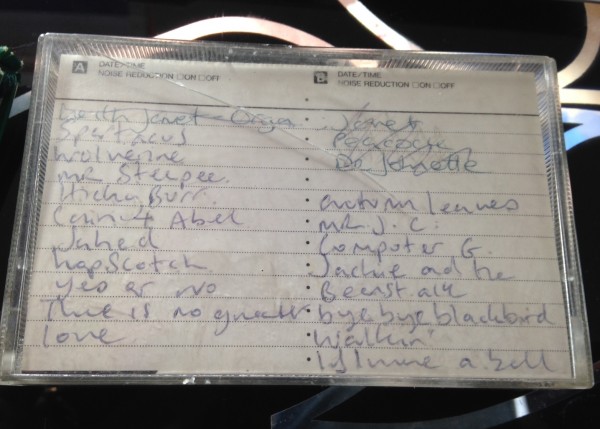 A DATE/TIME
NOISE REDUCTION □ON □OFF
Keith Janet - Organ
Spartacus
Wolverine
Mr Steepee.
Hicky Burr.
Cain & Abel
Jahed
hopscotch
yes or no
There is no greater
love
B DATE/TIME
NOISE REDUCTION □ON □OFF
Janet
Peacocke
De Johnette
autumn leaves
MR. J. C.
Computer G.
Jackie ad the
Beanstalk
bye bye blackbird
Walkin'
If I were a bell